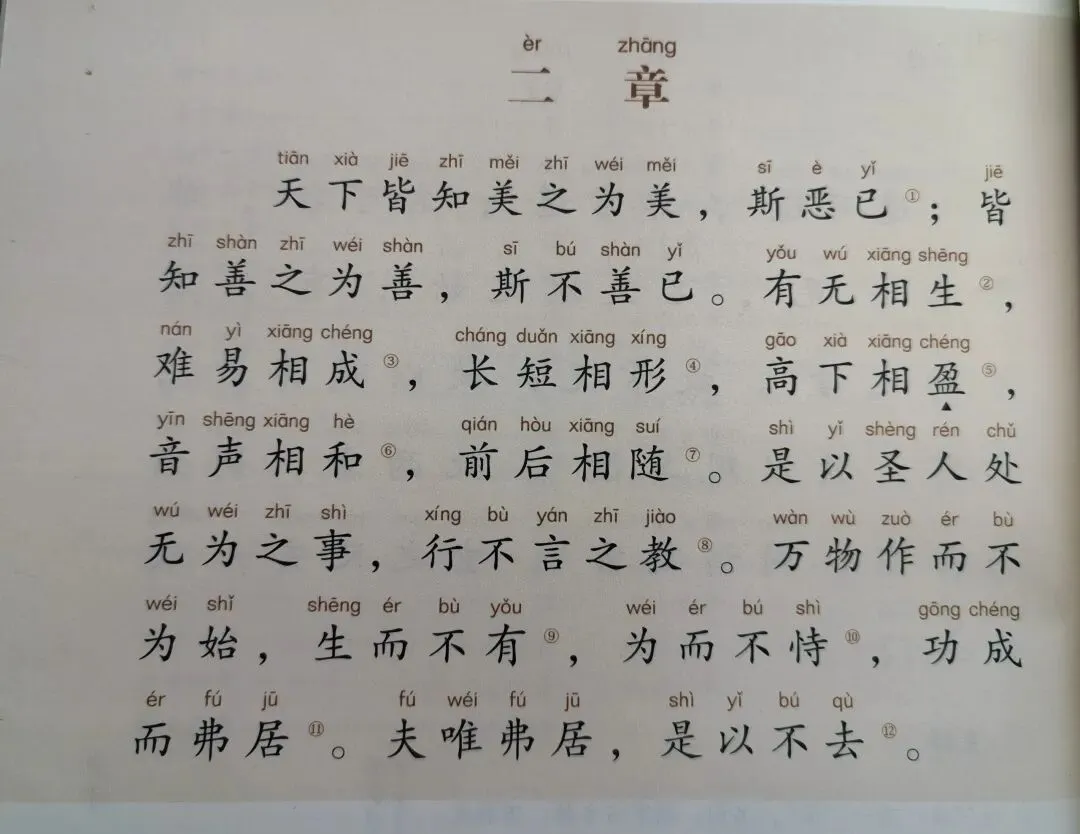 èr zhāng
二 章
tiān xià jiē zhī měi zhī wéi měi sī è yǐ jiē
天下皆知美之为美，斯恶已①；皆
zhī shàn zhī wéi shàn sī bú shàn yǐ yǒu wú xiāng shēng
知善之为善，斯不善已。有无相生②，
nán yì xiāng chéng cháng duǎn xiāng xíng gāo xià xiāng chéng
难易相成③，长短相形④，高下相盈⑤，
▲
yīn shēng xiāng hè qián hòu xiāng suí shì yǐ shèng rén chǔ
音声相和⑥，前后相随⑦。是以圣人处
wú wéi zhī shì xíng bù yán zhī jiào wàn wù zuò ér bù
无为之事，行不言之教⑧。万物作而不
wéi shǐ shēng ér bù yǒu wéi ér bú shì gōng chéng
为始，生而不有⑨，为而不恃⑩，功成
ér fú jū fú wéi fú jū shì yǐ bú qù
而弗居⑪。夫唯弗居，是以不去⑫。